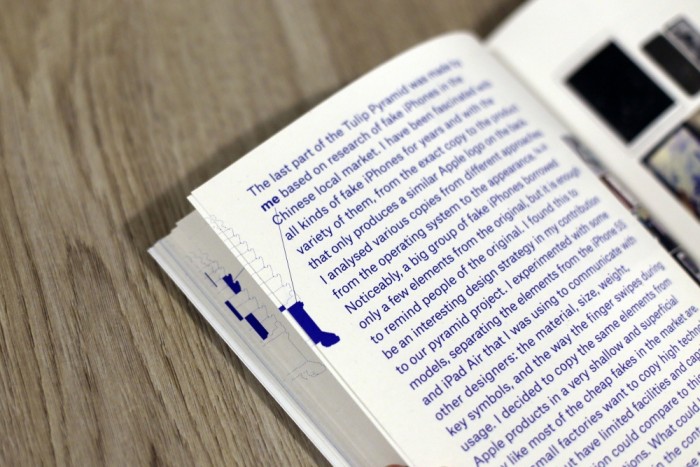 The last part of the Tulip Pyramid was made by
me based on research of fake iPhones in the
Chinese local market. I have been fascinated with
all kinds of fake iPhones for years and with the
variety of them, from the exact copy to the product
that only produces a similar Apple logo on the back.
I analysed various copies from different approaches
from the operating system to the appearance.
Noticeably, a big group of fake iPhones borrowed
only a few elements from the original, but it is enough
to remind people of the original. I found this to
be an interesting design strategy in my contribution
to our pyramid project. I experimented with some
models, separating the elements from the iPhone 5S
and iPad Air that I was using to communicate with
other designers: the material, size, weight,
key symbols, and the way the finger swipes during
usage. I decided to copy the same elements from
Apple products in a very shallow and superficial
like most of the cheap fakes in the market are.
mall factories want to copy high tech
t have limited facilities and
on could compare to
ons. What